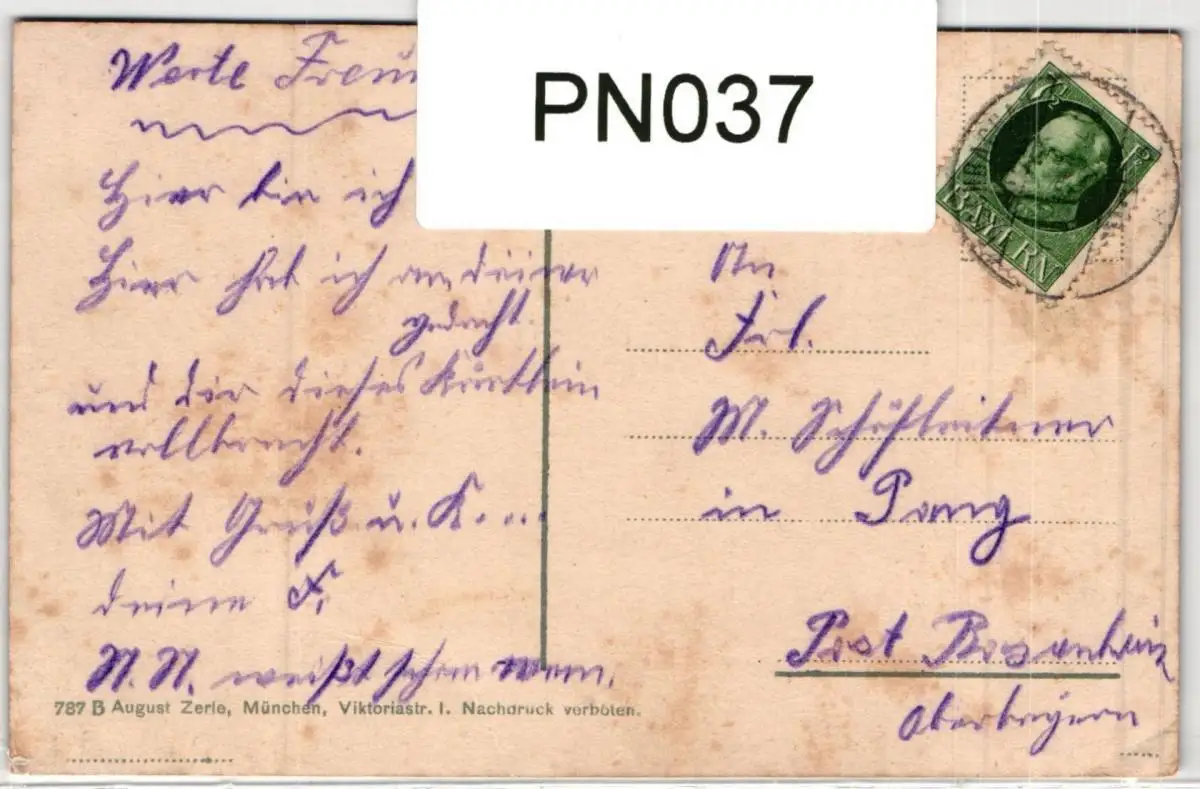 PN037
Werte Freun
Hier bin ich
Hier hat ich an deiner
gedacht.
und dir dieses Kärtlein
vollbracht.
Mit Gruß u. K. ...
deine F.
N. N. weißt schon wem.
787 B August Zerle, München, Viktoriastr. 1. Nachdruck verboten.
7½ P
BAYERN
An
Frl.
M. Schöfleitner
in Pang
Post Rosenheim
Oberbayern